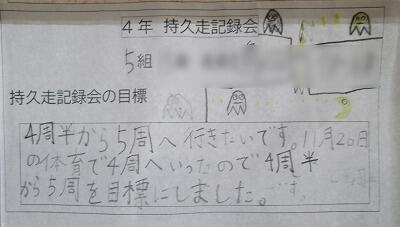 4年 持久走記録会
5組
持久走記録会の目標
4周半から5周へ行きたいです。11月20日
の体育で4周へいったので4周半
から5周を目標にしました。